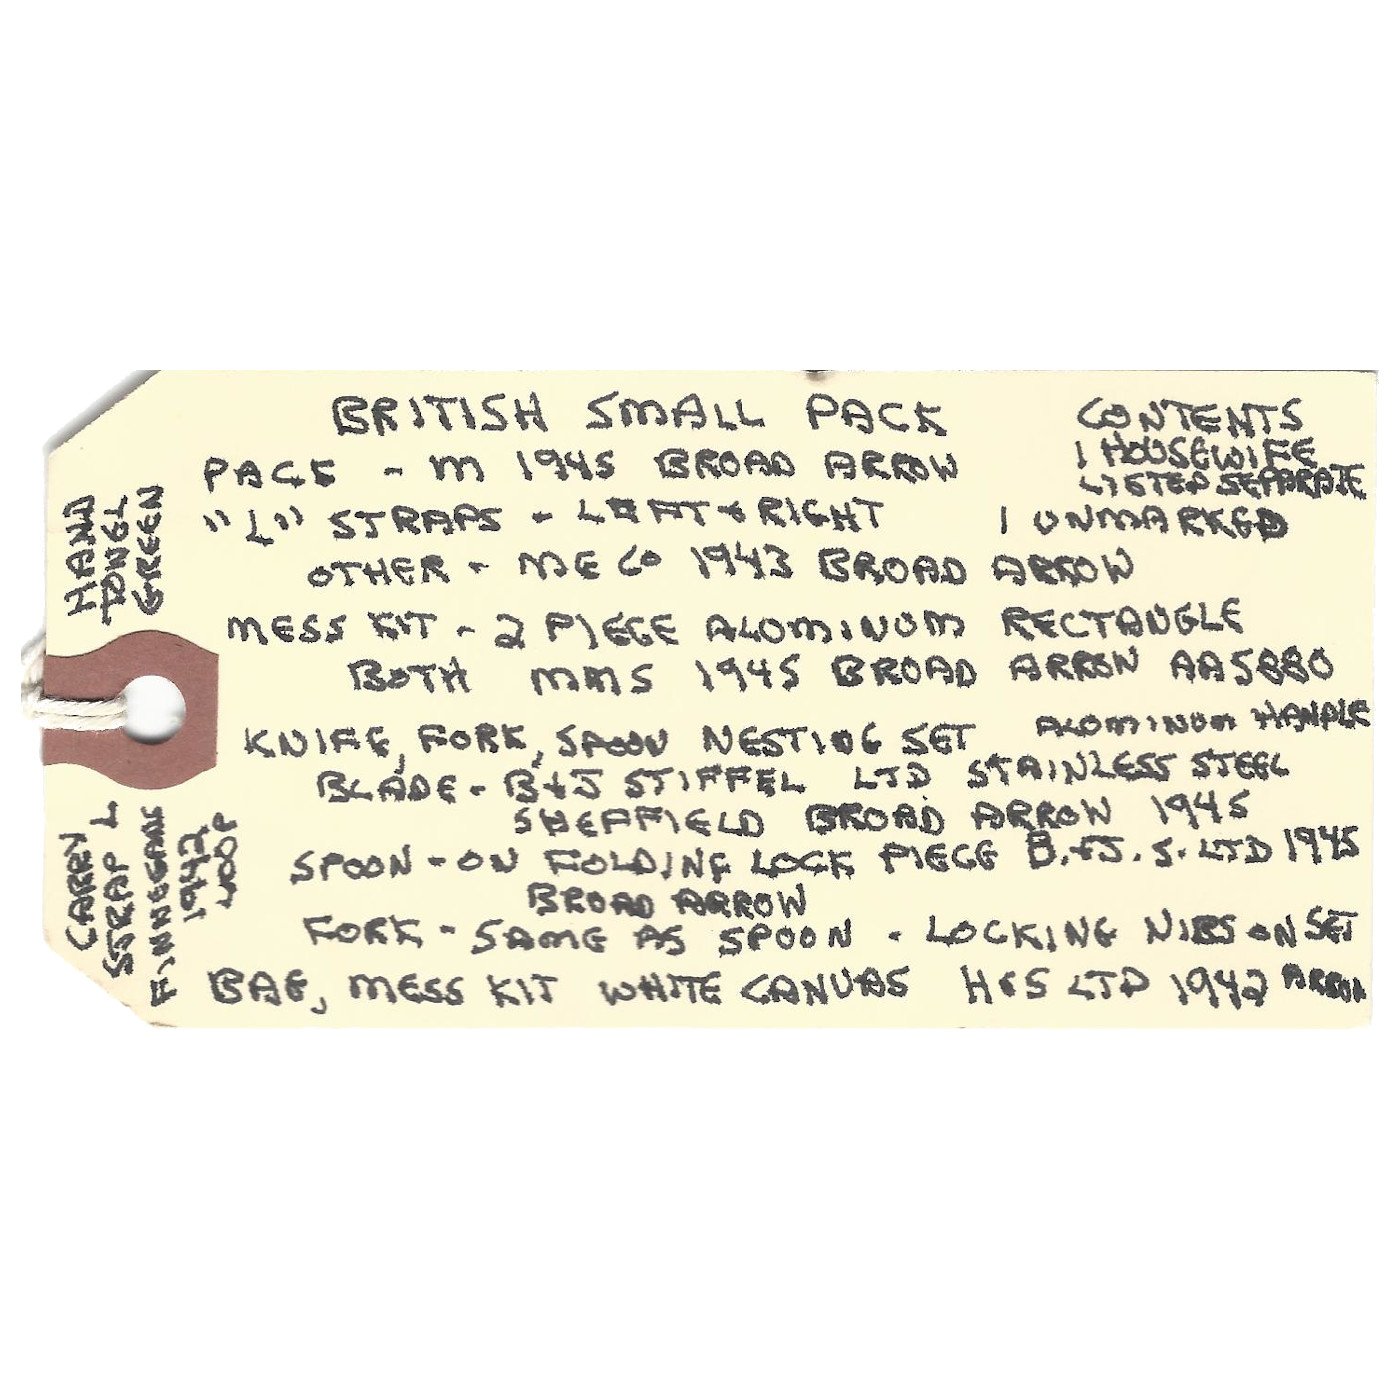 BRITISH SMALL PACK
CONTENTS
1 HOUSEWIFE
LISTED SEPARATE
PACK - M 1945 BROAD ARROW
"L" STRAPS - LEFT & RIGHT 1 UNMARKED
OTHER - MECO 1943 BROAD ARROW
MESS KIT - 2 PIECE ALOMINUM RECTANGLE
BOTH MMS 1945 BROAD ARROW AA5880
KNIFE, FORK, SPOON NESTING SET ALOMINUM HANDLE
BLADE - B&J STIFFEL LTD STAINLESS STEEL
SHEFFIELD BROAD ARROW 1945
SPOON - ON FOLDING LOCK PIECE B.&J.S. LTD 1945
BROAD ARROW
FORK - SAME AS SPOON - LOCKING NIBS ON SET
BAG, MESS KIT WHITE CANVAS H&S LTD 1942 ARROW
HAND
TOWEL
GREEN
CARRY
STRAP L
FINNEGANS
1942